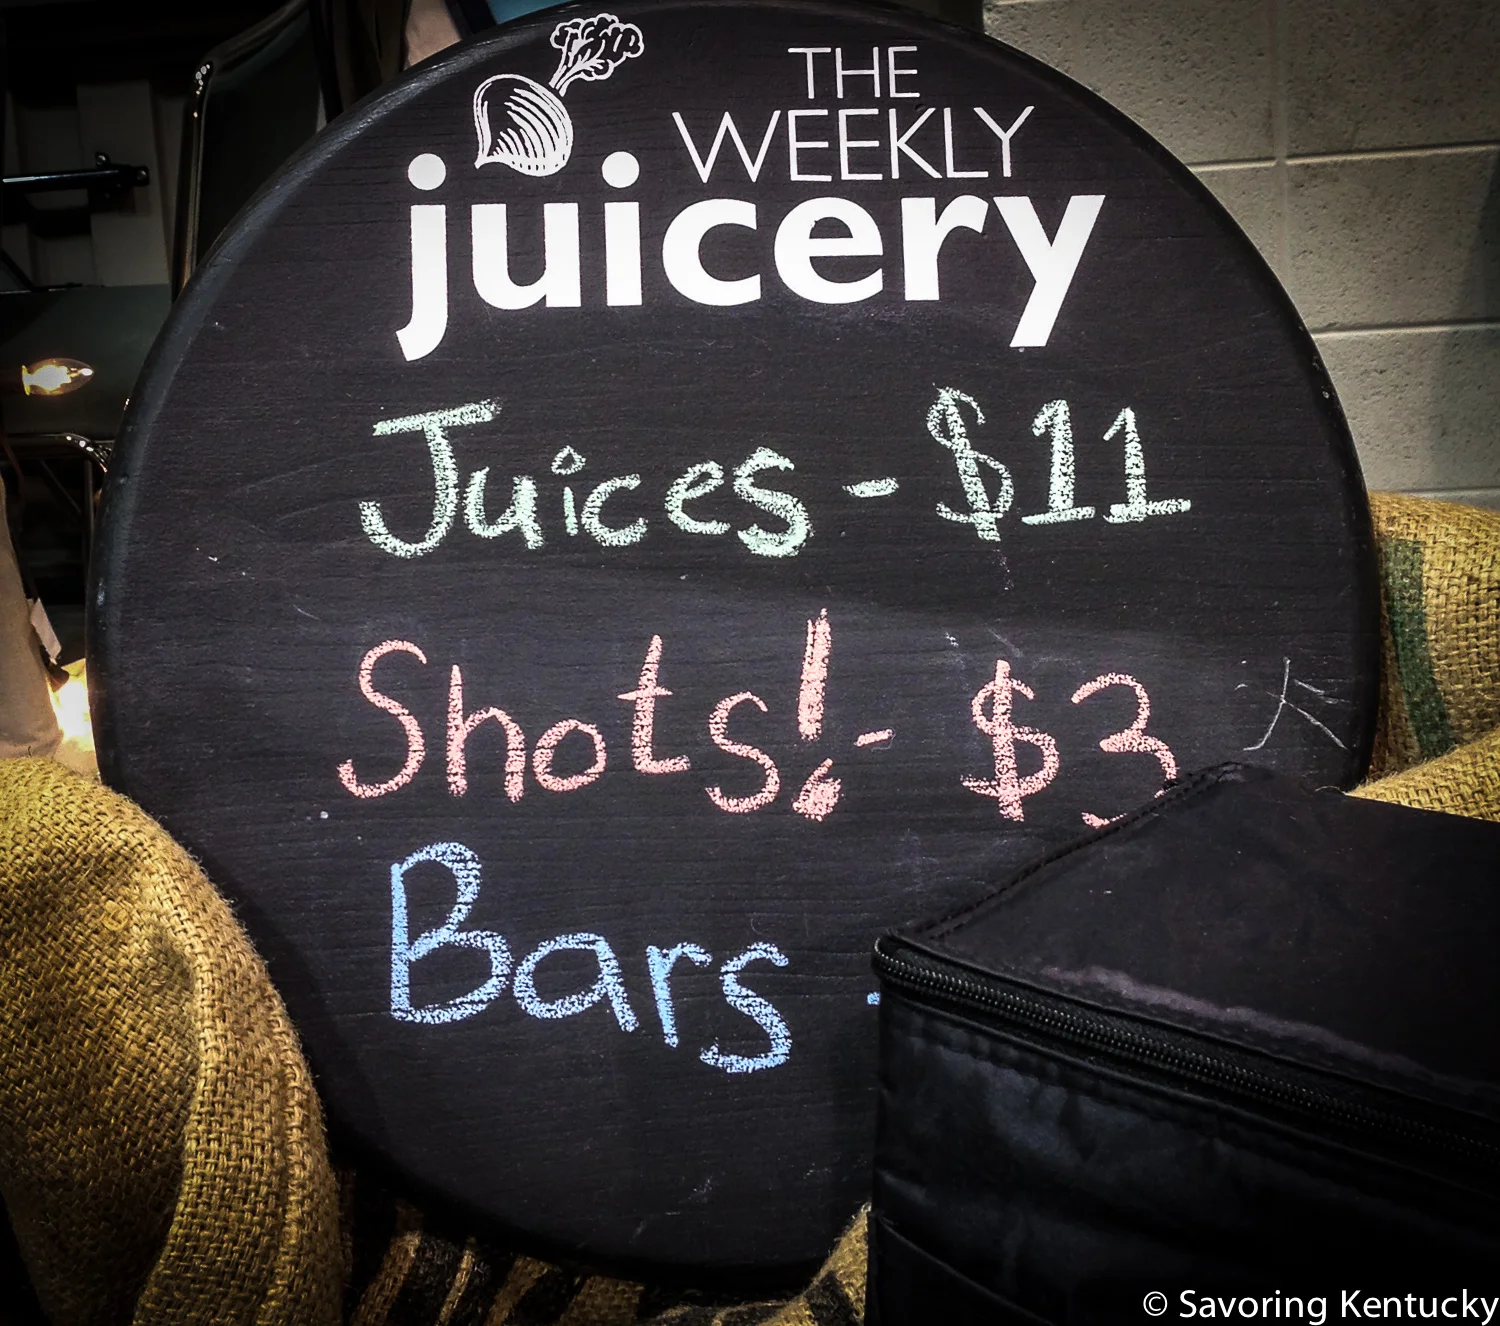 THE
WEEKLY
juicery
Juices - $11
Shots! - $3
Bars -
© Savoring Kentucky